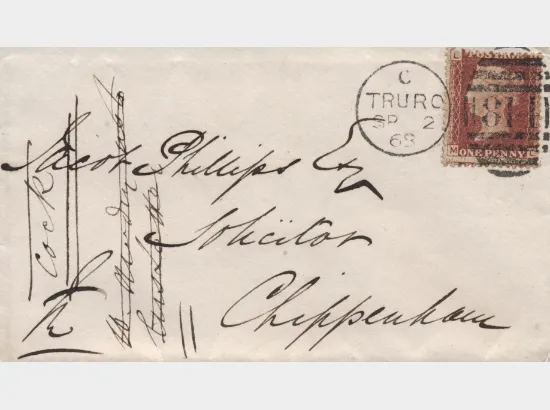 C
TRURO
SP 2
68
L POSTAGE
M ONE PENNY L
Jacob Phillips Esq
Solicitor
Chippenham
Cock